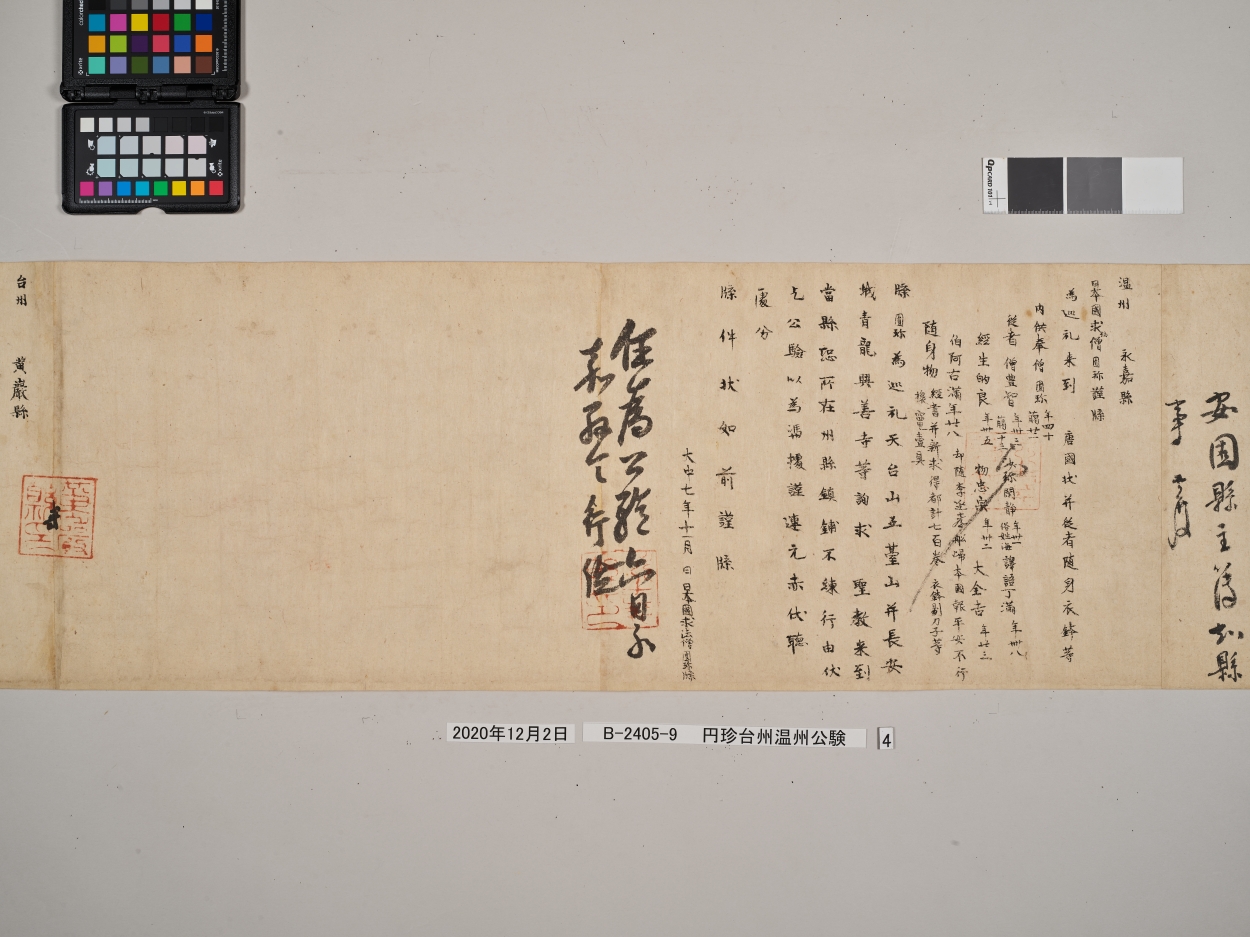 安固縣主簿知縣
事
温州 永嘉縣
日本國求法僧圓珎謹牒
為巡礼来到 唐國状并従者随身衣鉢等
内供奉僧圓珎 年四十 臈廿一
従者 僧豊智 年卅三 臈一十三 沙弥閑静 年卅一 俗姓海 譯語丁滿 年卌八
經生的良 年卅五 物忠宗 年卅二 大全吉 年廿三
伯阿古滿 年廿八 却随李延孝舩歸本國報平安不行
随身物 經書并新求得都計七百巻 衣鉢剔刀子等
牒圓珎為巡礼天台山五臺山并長安
城青龍興善寺等詢求 聖教来到
當縣恐所在州縣鎮鋪不練行由伏
乞公驗以為憑據謹連元赤伏聴
處分
牒件状如前謹牒
大中七年十一月 日日本國求法僧圓珎牒
任為公驗六日永
嘉縣令
台州 黄巌縣
colorchecker
x-rite
QPCARD 101
2020年12月2日 B-2405-9 円珍台州温州公験 4